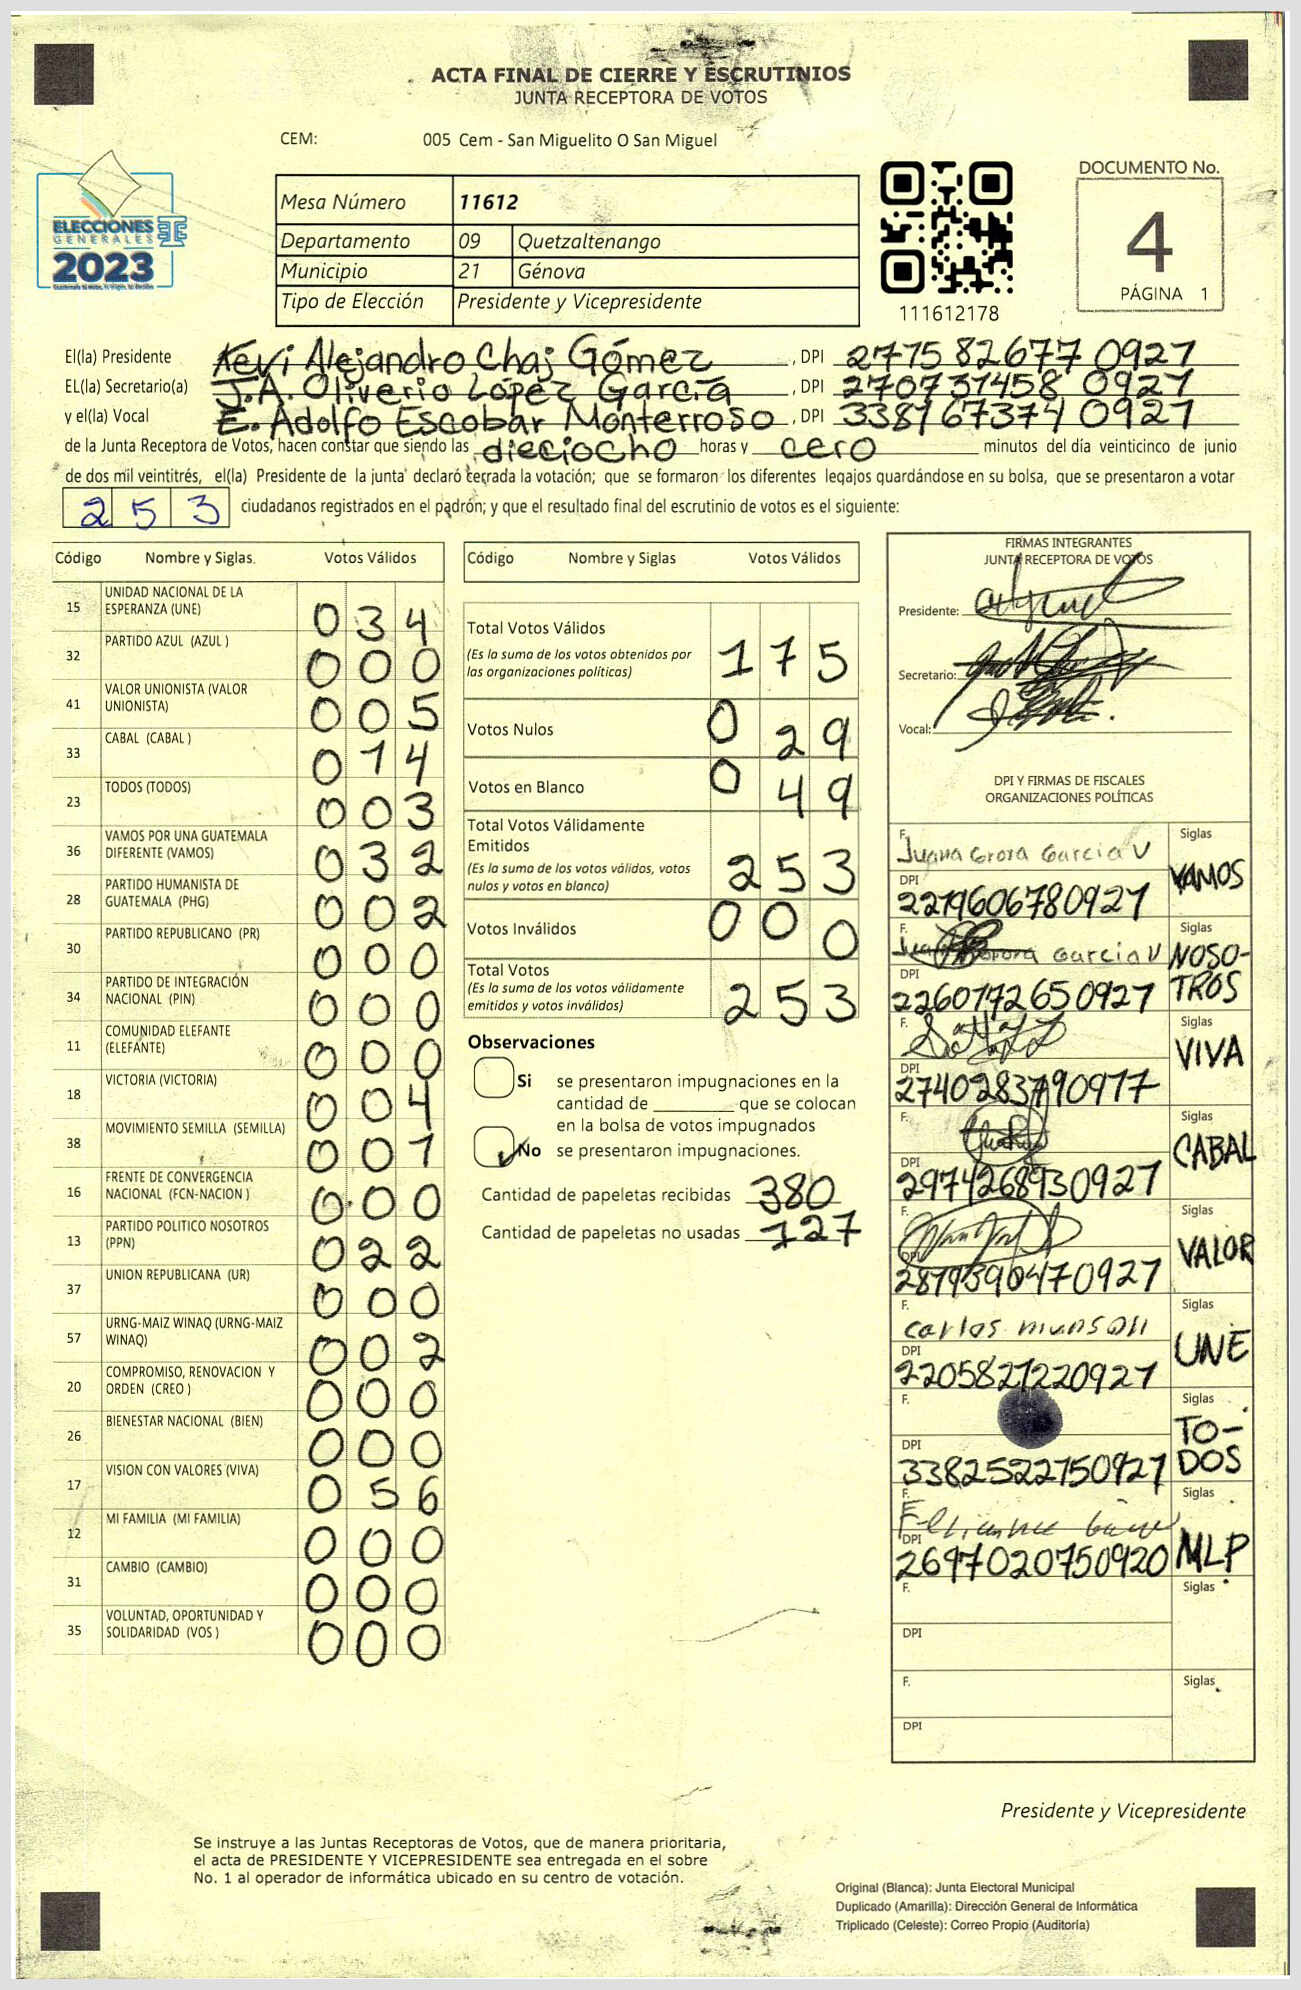 ACTA FINAL DE CIERRE Y ESCRUTINIOS
JUNTA RECEPTORA DE VOTOS
CEM: 005 Cem - San Miguelito O San Miguel
ELECCIONES
GENERALES
2023
Mesa Número 11612
Departamento 09 Quetzaltenango
Municipio 21 Génova
Tipo de Elección Presidente y Vicepresidente
111612178
DOCUMENTO No.
4
PÁGINA 1
El(la) Presidente Kevi Alejandro Chaj Gómez, DPI 277582677 0927
EL(la) Secretario(a) J.A. Oliverio López García, DPI 270731458 0927
y el(la) Vocal E. Adolfo Escobar Monterroso, DPI 338167374 0927
de la Junta Receptora de Votos, hacen constar que siendo las dieciocho horas y cero minutos del día veinticinco de junio
de dos mil veintitrés, el(la) Presidente de la junta declaró cerrada la votación; que se formaron los diferentes legajos guardándose en su bolsa, que se presentaron a votar
253 ciudadanos registrados en el padrón; y que el resultado final del escrutinio de votos es el siguiente:
Código Nombre y Siglas. Votos Válidos
15 UNIDAD NACIONAL DE LA ESPERANZA (UNE) 034
32 PARTIDO AZUL (AZUL ) 000
41 VALOR UNIONISTA (VALOR UNIONISTA) 005
33 CABAL (CABAL ) 014
23 TODOS (TODOS) 003
36 VAMOS POR UNA GUATEMALA DIFERENTE (VAMOS) 032
28 PARTIDO HUMANISTA DE GUATEMALA (PHG) 002
30 PARTIDO REPUBLICANO (PR) 000
34 PARTIDO DE INTEGRACIÓN NACIONAL (PIN) 000
11 COMUNIDAD ELEFANTE (ELEFANTE) 000
18 VICTORIA (VICTORIA) 004
38 MOVIMIENTO SEMILLA (SEMILLA) 001
16 FRENTE DE CONVERGENCIA NACIONAL (FCN-NACION ) 000
13 PARTIDO POLITICO NOSOTROS (PPN) 022
37 UNION REPUBLICANA (UR) 000
57 URNG-MAIZ WINAQ (URNG-MAIZ WINAQ) 002
20 COMPROMISO, RENOVACION Y ORDEN (CREO ) 000
26 BIENESTAR NACIONAL (BIEN) 000
17 VISION CON VALORES (VIVA) 056
12 MI FAMILIA (MI FAMILIA) 000
31 CAMBIO (CAMBIO) 000
35 VOLUNTAD, OPORTUNIDAD Y SOLIDARIDAD (VOS ) 000
Código Nombre y Siglas Votos Válidos
Total Votos Válidos 175
(Es la suma de los votos obtenidos por
las organizaciones políticas)
Votos Nulos 029
Votos en Blanco 049
Total Votos Válidamente
Emitidos 253
(Es la suma de los votos válidos, votos
nulos y votos en blanco)
Votos Inválidos 000
Total Votos 253
(Es la suma de los votos válidamente
emitidos y votos inválidos)
Observaciones
Si se presentaron impugnaciones en la
cantidad de ________ que se colocan
en la bolsa de votos impugnados
No se presentaron impugnaciones.
Cantidad de papeletas recibidas 380
Cantidad de papeletas no usadas 127
FIRMAS INTEGRANTES
JUNTA RECEPTORA DE VOTOS
Presidente:
Secretario:
Vocal:
DPI Y FIRMAS DE FISCALES
ORGANIZACIONES POLÍTICAS
F. Juana García V Siglas
DPI VAMOS
2219606780927
F. García V Siglas
DPI NOSOTROS
2260172650927
F. Siglas
DPI VIVA
F. Siglas
DPI CABAL
2974268930927
F. Siglas
DPI VALOR
F. Carlos Siglas
DPI UNE
2205821220927
F. Siglas
DPI TO-DOS
3382522750927
F. Siglas
DPI MLP
2697020750920
F. Siglas
DPI
F. Siglas
DPI
Presidente y Vicepresidente
Se instruye a las Juntas Receptoras de Votos, que de manera prioritaria,
el acta de PRESIDENTE Y VICEPRESIDENTE sea entregada en el sobre
No. 1 al operador de informática ubicado en su centro de votación.
Original (Blanca): Junta Electoral Municipal
Duplicado (Amarilla): Dirección General de Informática
Triplicado (Celeste): Correo Propio (Auditoría)